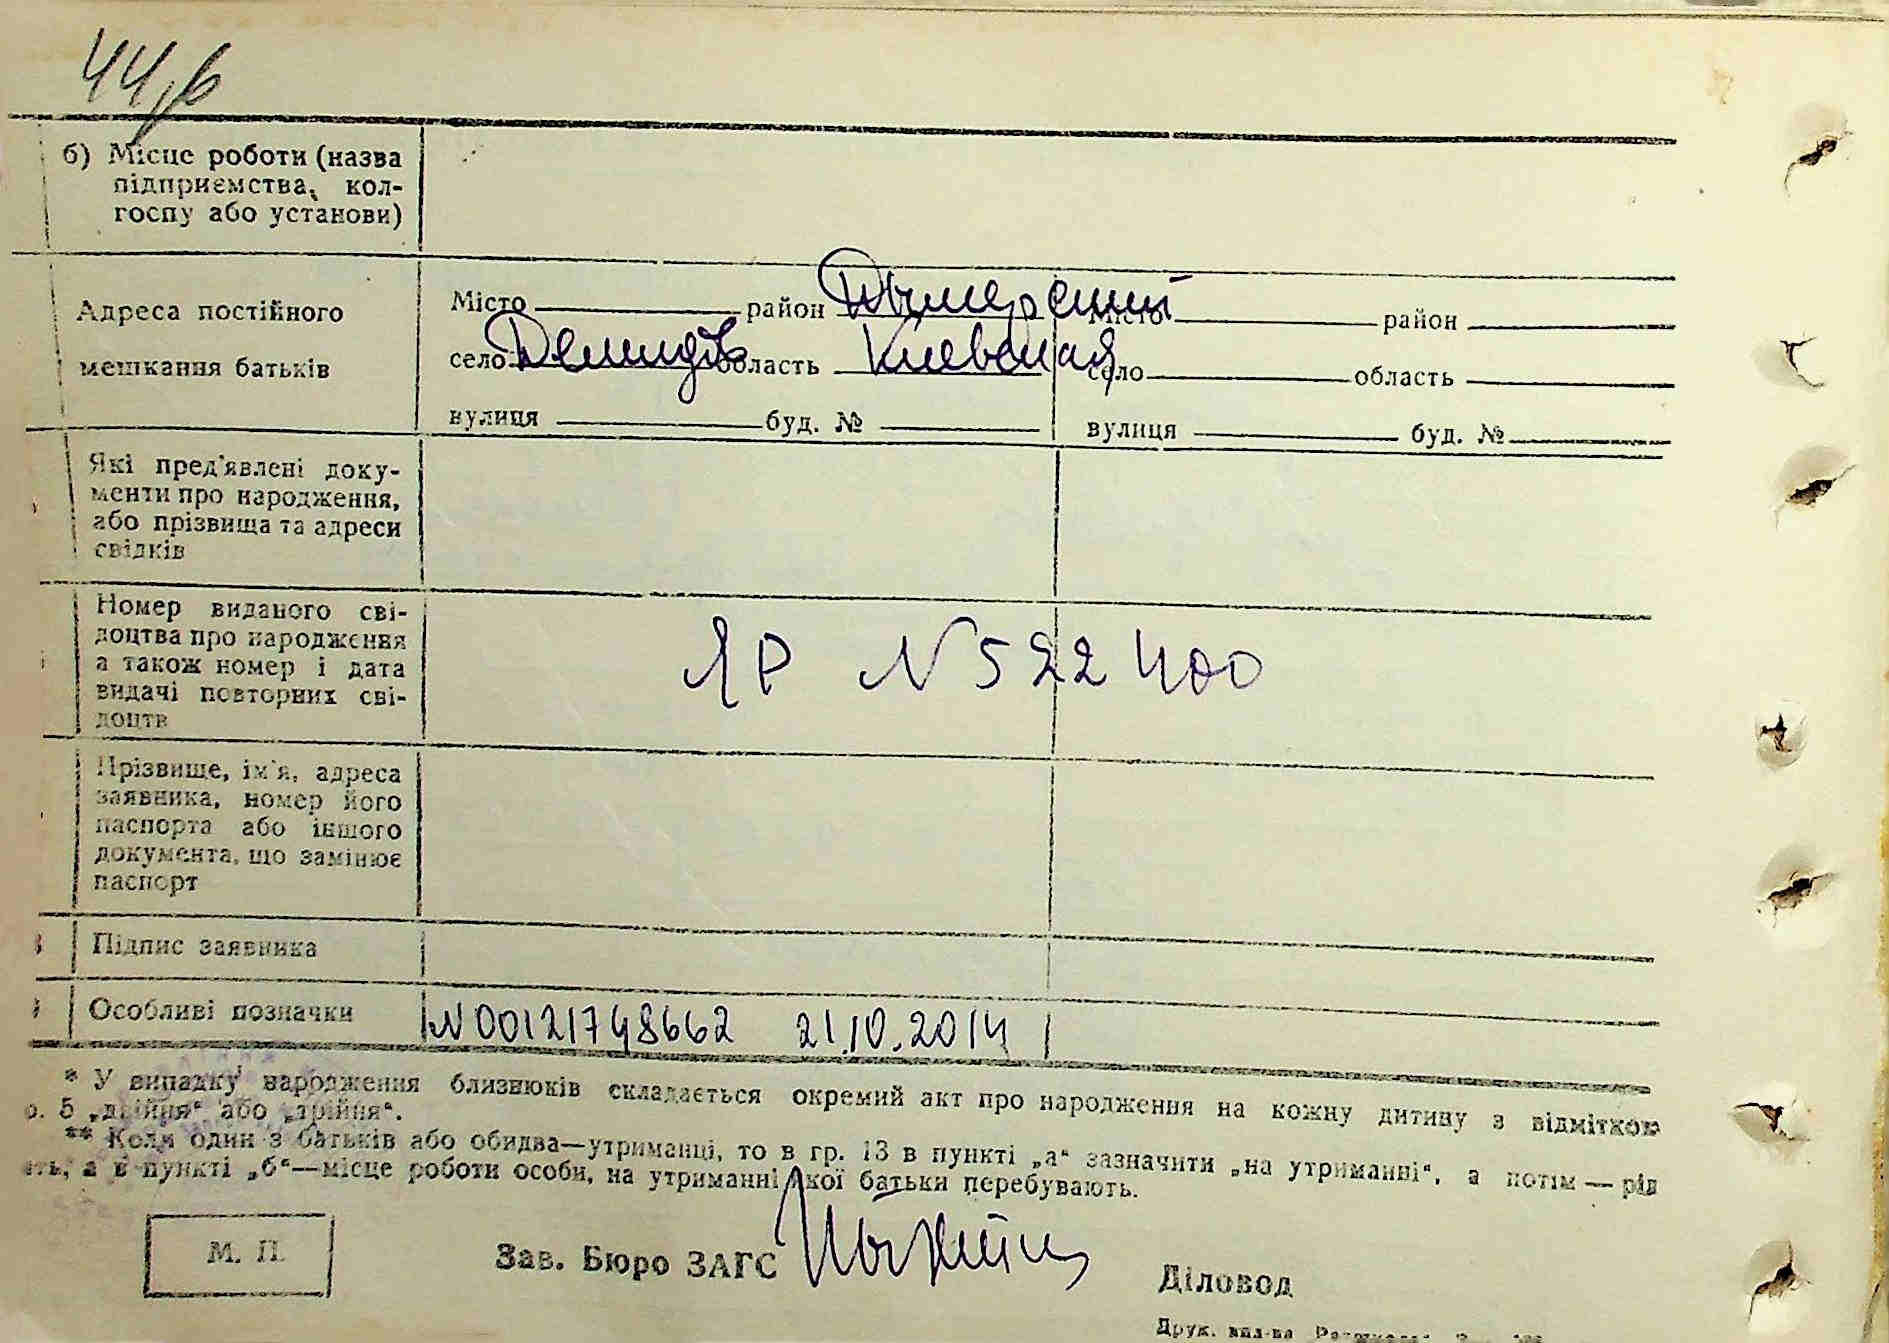 44,б
б) Місце роботи (назва
підприємства, кол-
госпу або установи)
Адреса постійного
мешкання батьків
Місто район Дымерский
село Демидів область Киевская
вулиця буд. №
Місто район
село область
вулиця буд. №
Які пред'явлені доку-
менти про народження,
або прізвища та адреси
свідків
Номер виданого сві-
доцтва про народження
а також номер і дата
видачі повторних сві-
доцтв
ЯР N 522400
Прізвище, ім'я, адреса
заявника, номер його
паспорта або іншого
документа, що замінює
паспорт
Підпис заявника
Особливі позначки
N 00121748662 21.10.2014
* У випадку народження близнюків складається окремий акт про народження на кожну дитину з відміткою
р. 5 „двійня“ або „трійня“.
** Коли один з батьків або обидва—утриманці, то в гр. 13 в пункті „а“ зазначити „на утриманні“, а потім — рід
ать, а в пункті „б“—місце роботи особи, на утриманні якої батьки перебувають.
М. П.
Зав. Бюро ЗАГС
Діловод
Друк. вид-ва